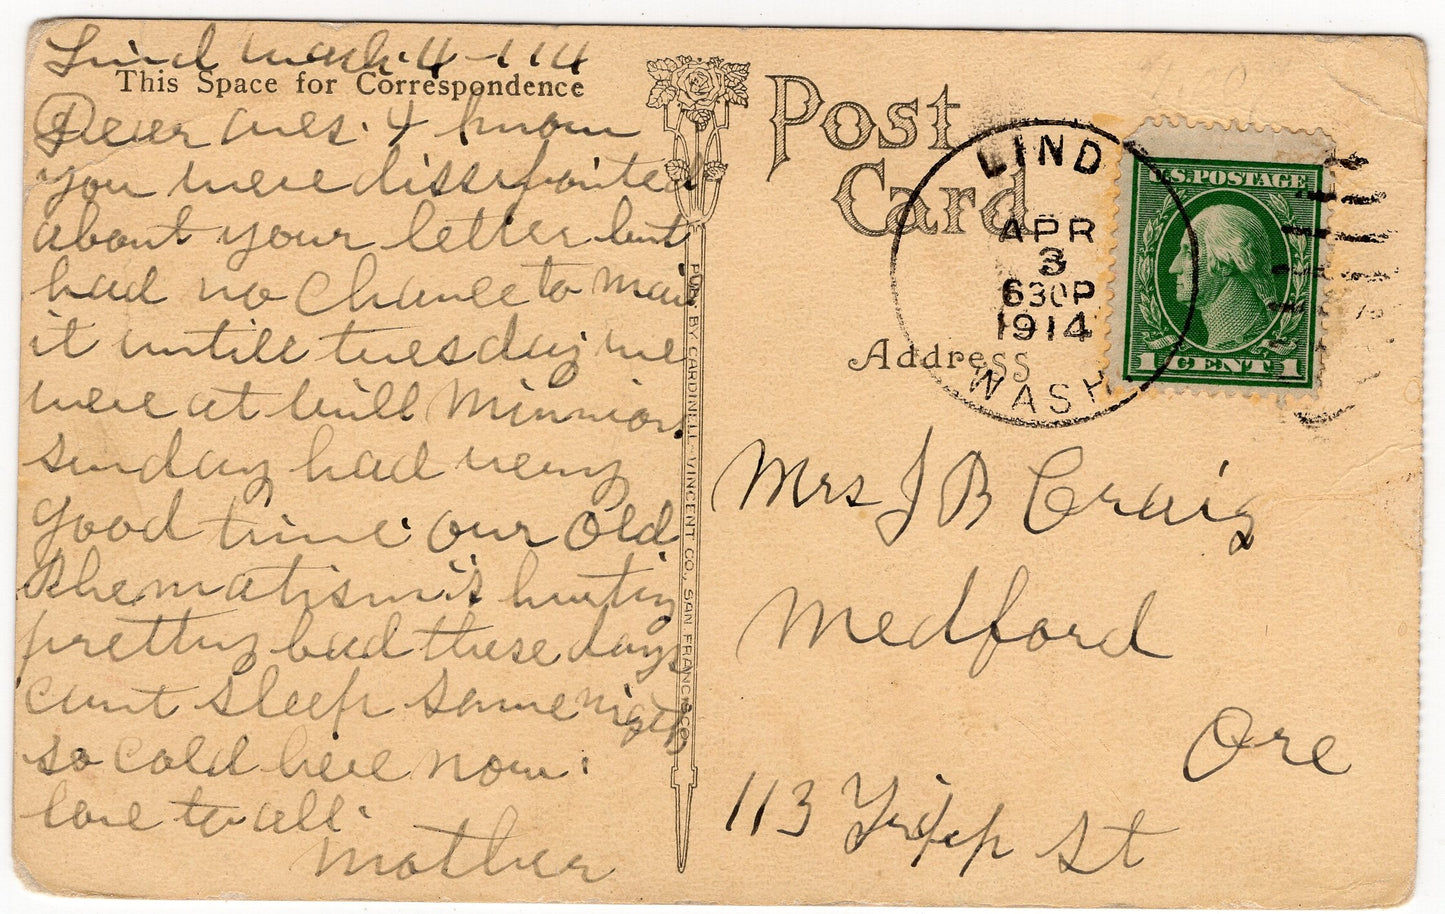 Lind Wash. 4-114
This Space for Correspondence
Dear ones. I know
you were dissipointed
about your letter but
had no Chance to Mail
it untill tuesday we
were at will Minnion
sunday had very
good time. our old
Rhematism is hurting
pretty bad these days
cant sleep some nights
so cold here now.
love to all.
Mother
PUB. BY CARDINELL-VINCENT CO., SAN FRANCISCO
Post
Card
LIND
APR
3
630P
1914
WASH
U.S. POSTAGE
1 CENT 1
Address
Mrs J B Craig
Medford
Ore
113 Tripp St